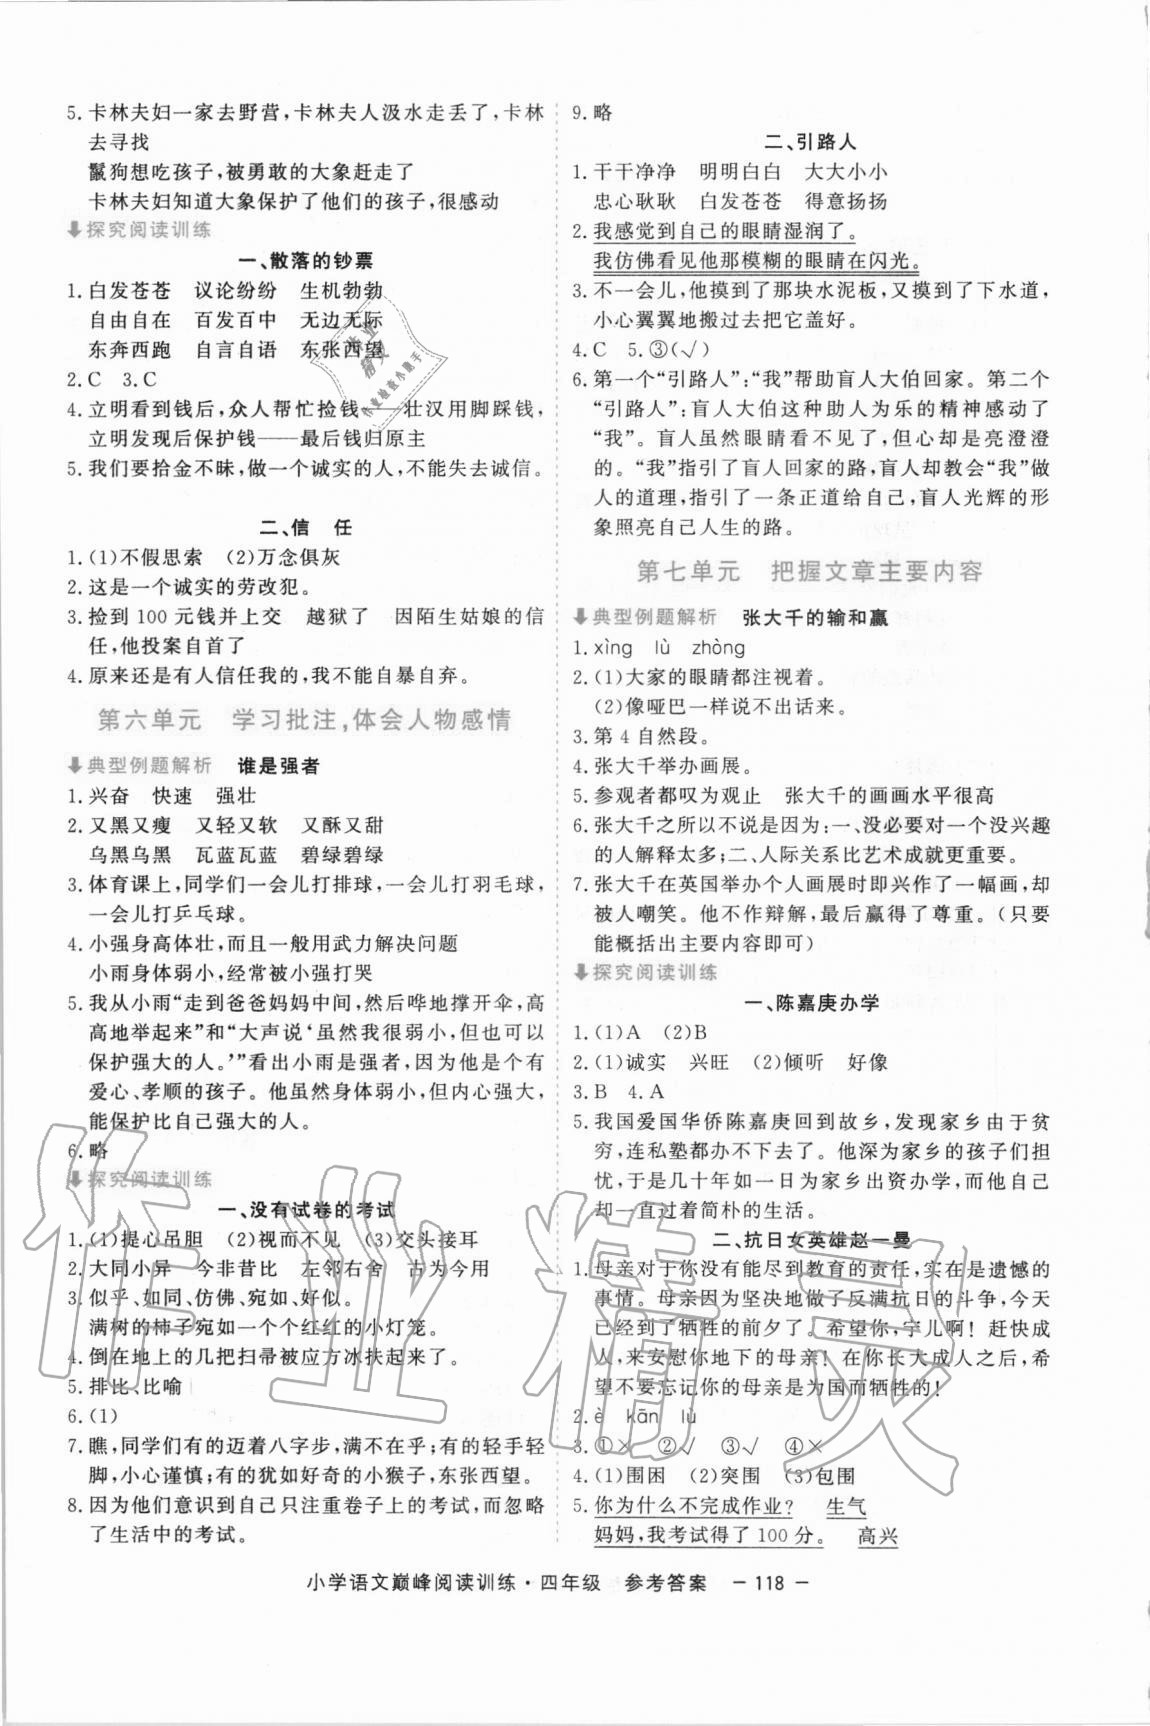 5. 卡林夫妇一家去野营,卡林夫人汲水走丢了,卡林
去寻找
鬣狗想吃孩子,被勇敢的大象赶走了
卡林夫妇知道大象保护了他们的孩子,很感动
探究阅读训练
一、散落的钞票
1. 白发苍苍 议论纷纷 生机勃勃
自由自在 百发百中 无边无际
东奔西跑 自言自语 东张西望
2. C 3. C
4. 立明看到钱后,众人帮忙捡钱——壮汉用脚踩钱,
立明发现后保护钱——最后钱归原主
5. 我们要拾金不昧,做一个诚实的人,不能失去诚信。
二、信 任
1. (1)不假思索 (2)万念俱灰
2. 这是一个诚实的劳改犯。
3. 捡到 100 元钱并上交 越狱了 因陌生姑娘的信
任,他投案自首了
4. 原来还是有人信任我的,我不能自暴自弃。
第六单元 学习批注,体会人物感情
典型例题解析 谁是强者
1. 兴奋 快速 强壮
2. 又黑又瘦 又轻又软 又酥又甜
乌黑乌黑 瓦蓝瓦蓝 碧绿碧绿
3. 体育课上,同学们一会儿打排球,一会儿打羽毛球,
一会儿打乒乓球。
4. 小强身高体壮,而且一般用武力解决问题
小雨身体弱小,经常被小强打哭
5. 我从小雨“走到爸爸妈妈中间,然后哗地撑开伞,高
高地举起来”和“大声说‘虽然我很弱小,但也可以
保护强大的人。’”看出小雨是强者,因为他是个有
爱心、孝顺的孩子。他虽然身体弱小,但内心强大,
能保护比自己强大的人。
6. 略
探究阅读训练
一、没有试卷的考试
1. (1)提心吊胆 (2)视而不见 (3)交头接耳
2. 大同小异 今非昔比 左邻右舍 古为今用
3. 似乎、如同、仿佛、宛如、好似。
满树的柿子宛如一个个红红的小灯笼。
4. 倒在地上的几把扫帚被应方冰扶起来了。
5. 排比、比喻
6. (1)
7. 瞧,同学们有的迈着八字步,满不在乎;有的轻手轻
脚,小心谨慎;有的犹如好奇的小猴子,东张西望。
8. 因为他们意识到自己只注重卷子上的考试,而忽略
了生活中的考试。
9. 略
二、引路人
1. 干干净净 明明白白 大大小小
忠心耿耿 白发苍苍 得意扬扬
2. 我感觉到自己的眼睛湿润了。
我仿佛看见他那模糊的眼睛在闪光。
3. 不一会儿,他摸到了那块水泥板,又摸到了下水道,
小心翼翼地搬过去把它盖好。
4. C 5. ③(√)
6. 第一个“引路人”:“我”帮助盲人大伯回家。第二个
“引路人”:盲人大伯这种助人为乐的精神感动了
“我”。盲人虽然眼睛看不见了,但心却是亮澄澄
的。“我”指引了盲人回家的路,盲人却教会“我”做
人的道理,指引了一条正道给自己,盲人光辉的形
象照亮自己人生的路。
第七单元 把握文章主要内容
典型例题解析 张大千的输和赢
1. xìng lù zhòng
2. (1)大家的眼睛都注视着。
(2)像哑巴一样说不出话来。
3. 第 4 自然段。
4. 张大千举办画展。
5. 参观者都叹为观止 张大千的画画水平很高
6. 张大千之所以不说是因为:一、没必要对一个没兴趣
的人解释太多;二、人际关系比艺术成就更重要。
7. 张大千在英国举办个人画展时即兴作了一幅画,却
被人嘲笑。他不作辩解,最后赢得了尊重。(只要
能概括出主要内容即可)
探究阅读训练
一、陈嘉庚办学
1. (1)A (2)B
2. (1)诚实 兴旺 (2)倾听 好像
3. B 4. A
5. 我国爱国华侨陈嘉庚回到故乡,发现家乡由于贫
穷,连私塾都办不下去了。他深为家乡的孩子们担
忧,于是几十年如一日为家乡出资办学,而他自己
却一直过着简朴的生活。
二、抗日女英雄赵一曼
1. 母亲对于你没有能尽到教育的责任,实在是遗憾的
事情。母亲因为坚决地做了反满抗日的斗争,今天
已经到了牺牲的前夕了。希望你,宁儿啊!赶快成
人,来安慰你地下的母亲!在你长大成人之后,希
望不要忘记你的母亲是为国而牺牲的!
2. è kān lù
3. ①× ②√ ③√ ④×
4. (1)围困 (2)突围 (3)包围
5. 你为什么不完成作业? 生气
妈妈,我考试得了 100 分。 高兴
小学语文巅峰阅读训练·四年级 参考答案 – 118 –
作业精灵
作业
精灵
作业检查小助手